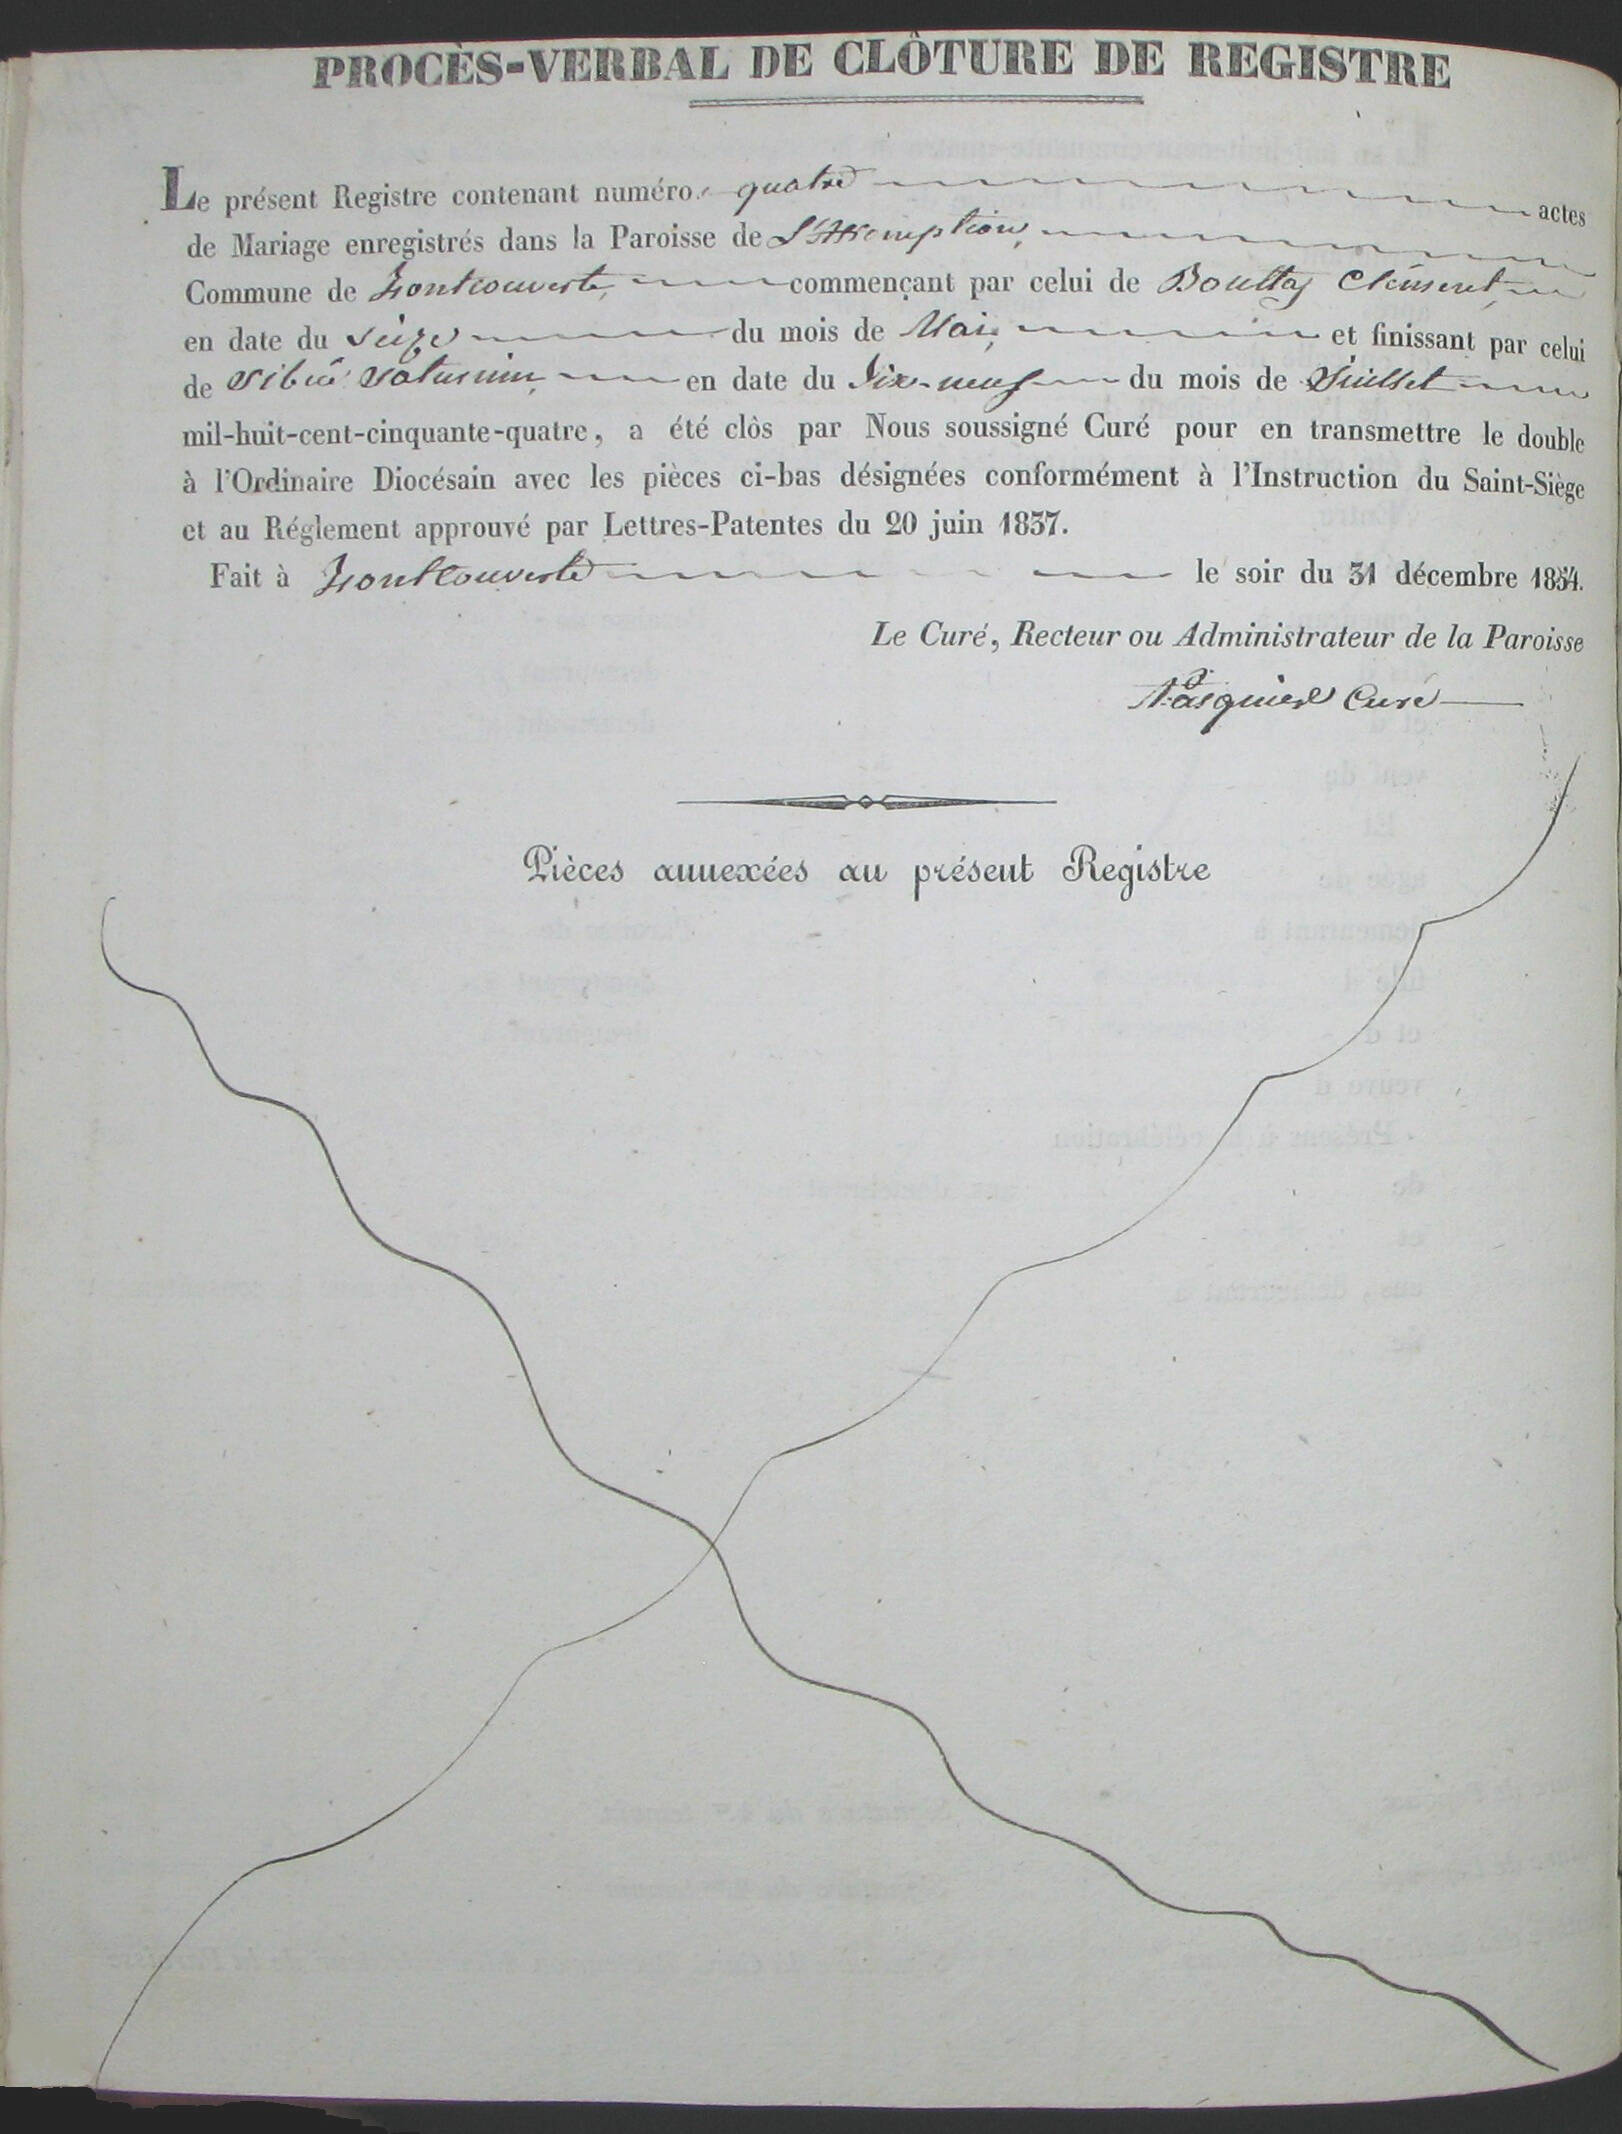 PROCÈS-VERBAL DE CLÔTURE DE REGISTRE
Le présent Registre contenant numéro quatre actes
de Mariage enregistrés dans la Paroisse de L'Assomption,
Commune de Fontcouverte, commençant par celui de Bouttaz Clément,
en date du seize du mois de Mai, et finissant par celui
de Sibué Saturnin, en date du dix-neuf du mois de Juillet
mil-huit-cent-cinquante-quatre, a été clòs par Nous soussigné Curé pour en transmettre le double
à l'Ordinaire Diocésain avec les pièces ci-bas désignées conformément à l'Instruction du Saint-Siège
et au Réglement approuvé par Lettres-Patentes du 20 juin 1837.
Fait à Fontcouverte le soir du 31 décembre 1854.
Le Curé, Recteur ou Administrateur de la Paroisse
Pasquier Curé
Pièces annexées au présent Registre